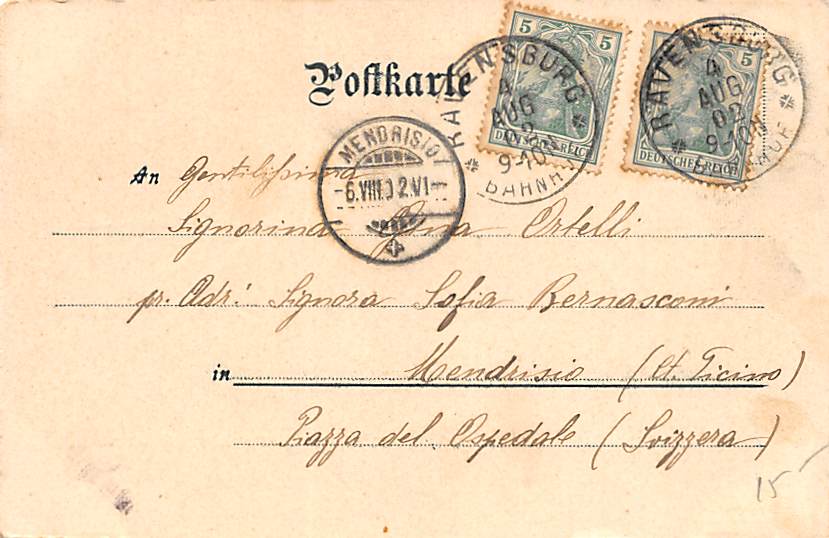 Postkarte
5
DEUTSCHES REICH
5
DEUTSCHES REICH
RAVENSBURG
4
AUG
02
9-10V
BAHNHOF
RAVENSBURG
4
AUG
02
9-10V
BAHNHOF
MENDRISIO
-6.VIII.02.VI-
An Gentilissima
Signorina Ortelli
pr. Adr: Signora Sofia Bernasconi
in Mendrisio (Ct. Ticino)
Piazza del Ospedale (Svizzera)
15